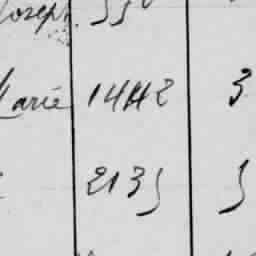 Joseph
Marie 1442 3
2135 5